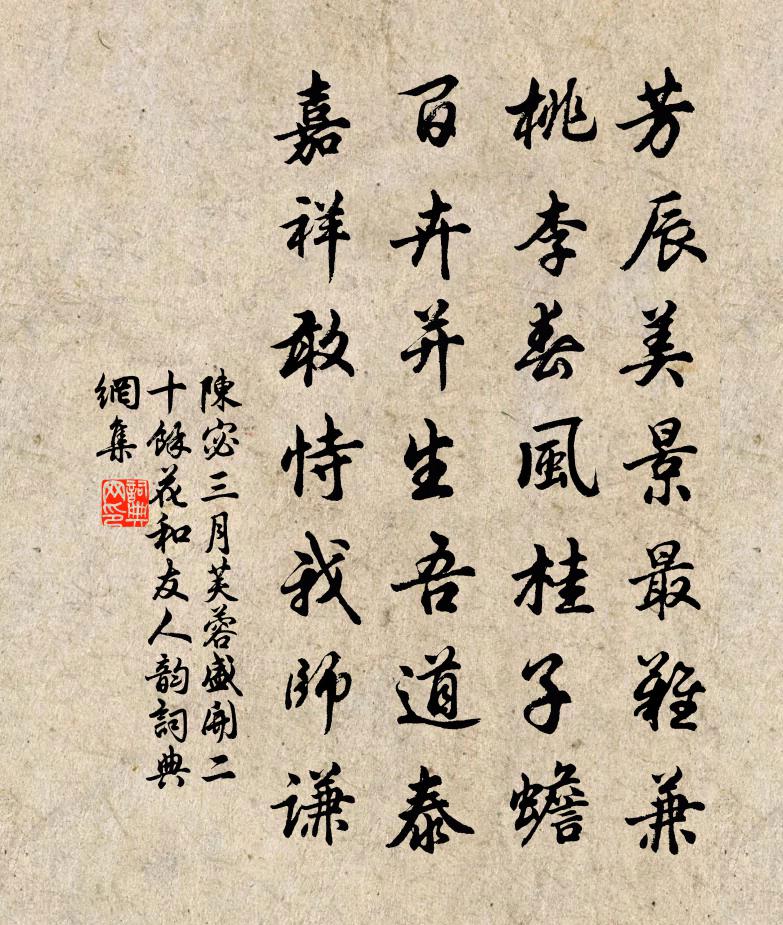 芳辰美景最難兼
桃李春風桂子蟾
百卉并生吾道泰
嘉祥敢恃我師謙
陳宓三月芙蓉盛開二
十餘花和友人韵詞典
網集
詞典
网印